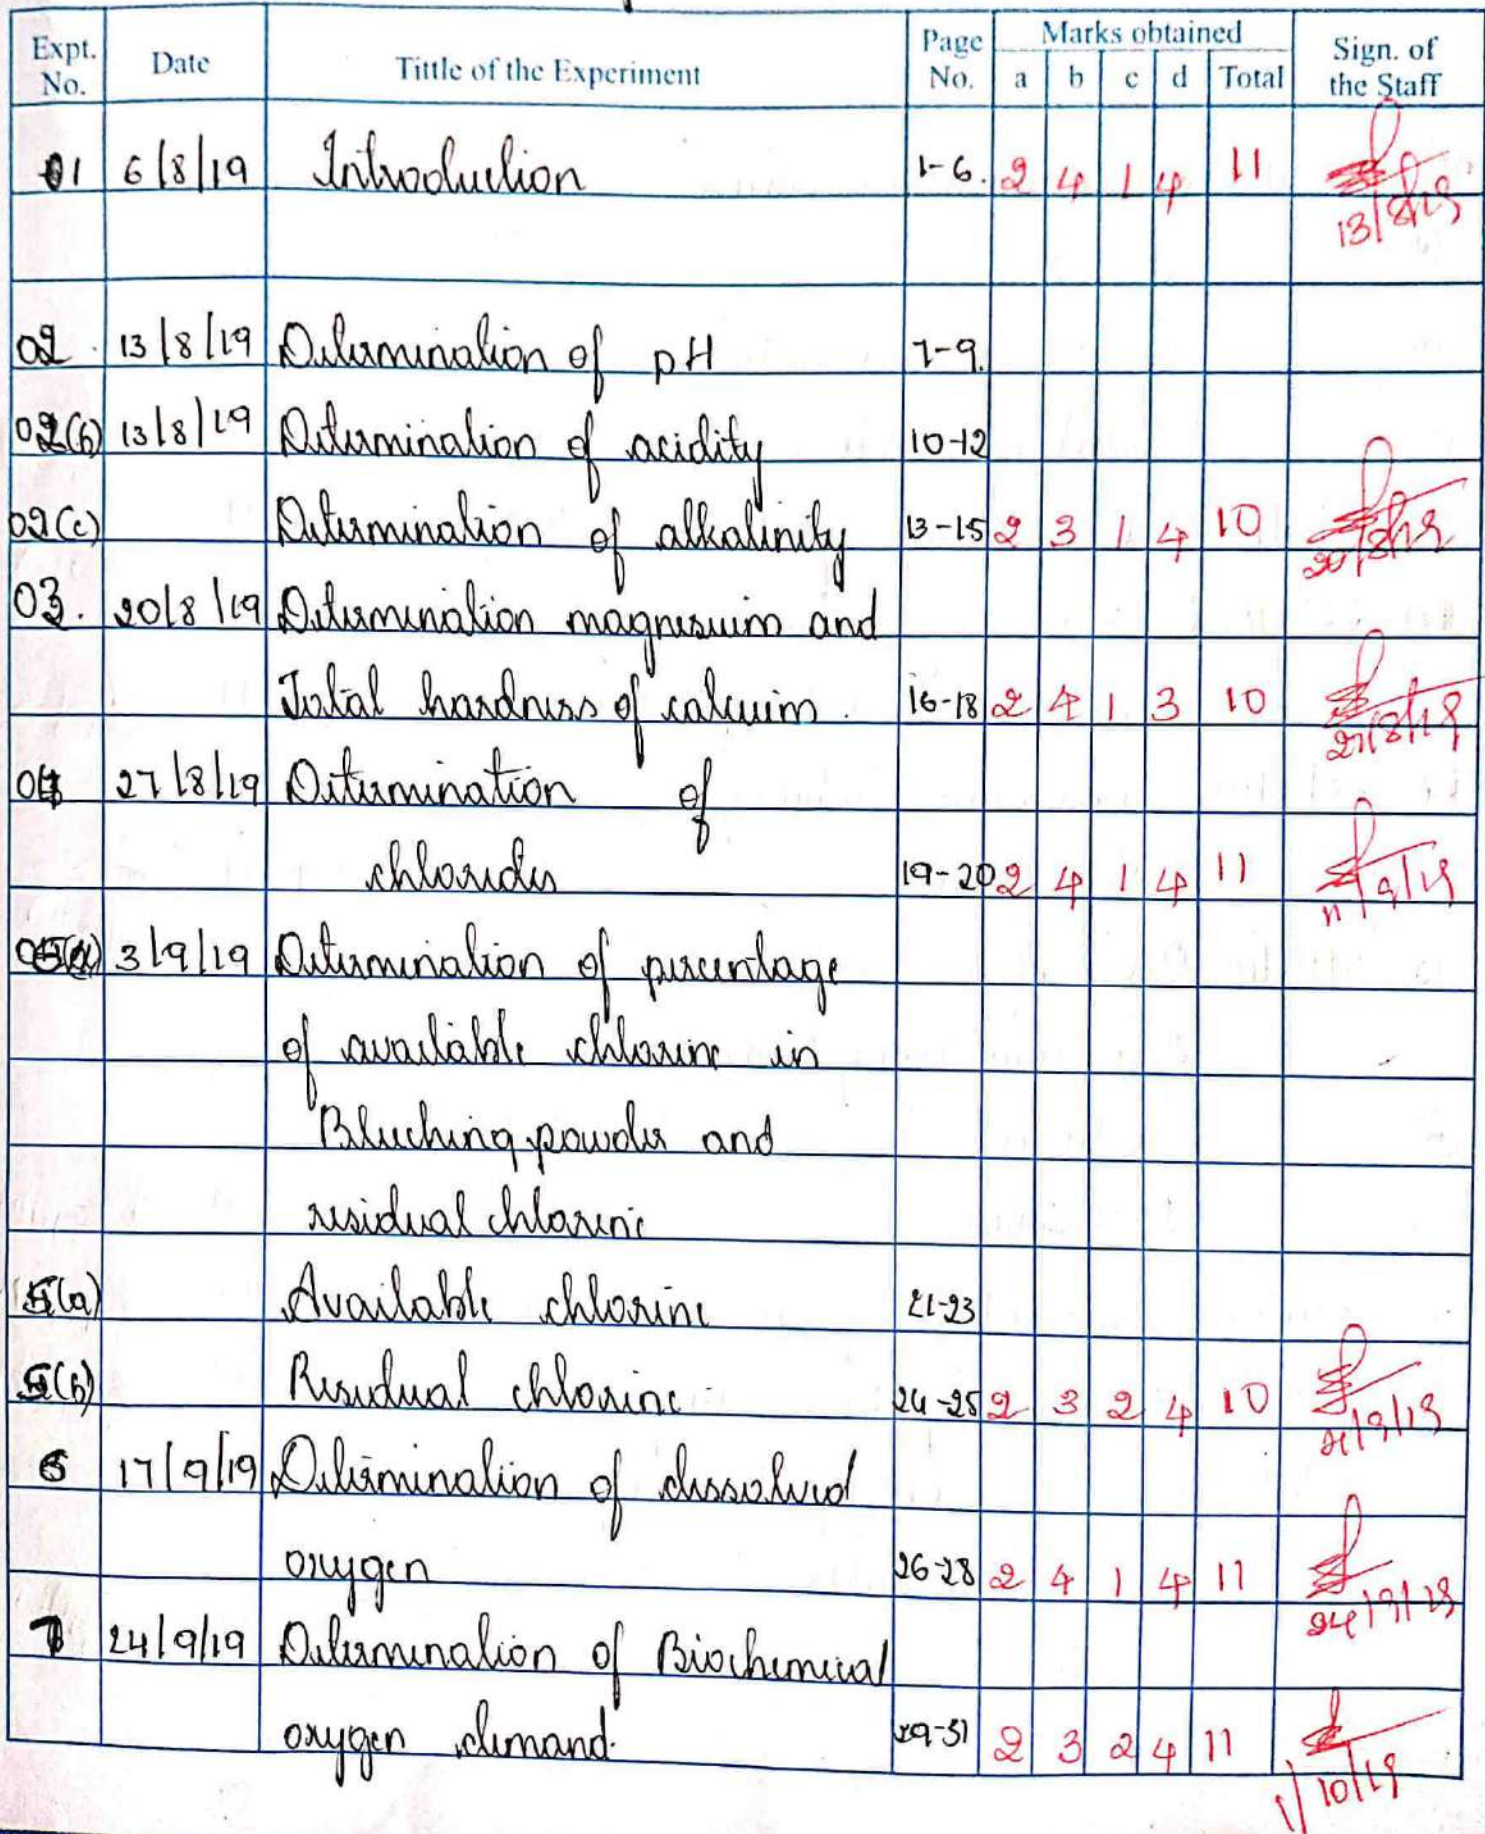 Expt. No. Date Tittle of the Experiment Page No. Marks obtained Sign. of the Staff
a b c d Total
01 6/8/19 Introduction 1-6. 2 4 1 4 11
13/8/19
02 13/8/19 Determination of pH 7-9.
02(b) 13/8/19 Determination of acidity 10-12
02(c) Determination of alkalinity 13-15 2 3 1 4 10
20/8/19
03. 20/8/19 Determination magnesium and
Total hardness of calcuim. 16-18 2 4 1 3 10
27/8/19
04 27/8/19 Determination of
chlorides 19-20 2 4 1 4 11
11/9/19
3/9/19 Determination of percentage
of available chlorine in
Bleuching powder and
residual chlorine
5(a) Available chlorine 21-23
5(b) Residual chlorine. 24-25 2 3 2 4 10
6 17/9/19 Determination of dissolved
oxygen 26-28 2 4 1 4 11
24/9/19
7 24/9/19 Determination of Biochemical
oxygen demand. 29-31 2 3 2 4 11
1/10/19